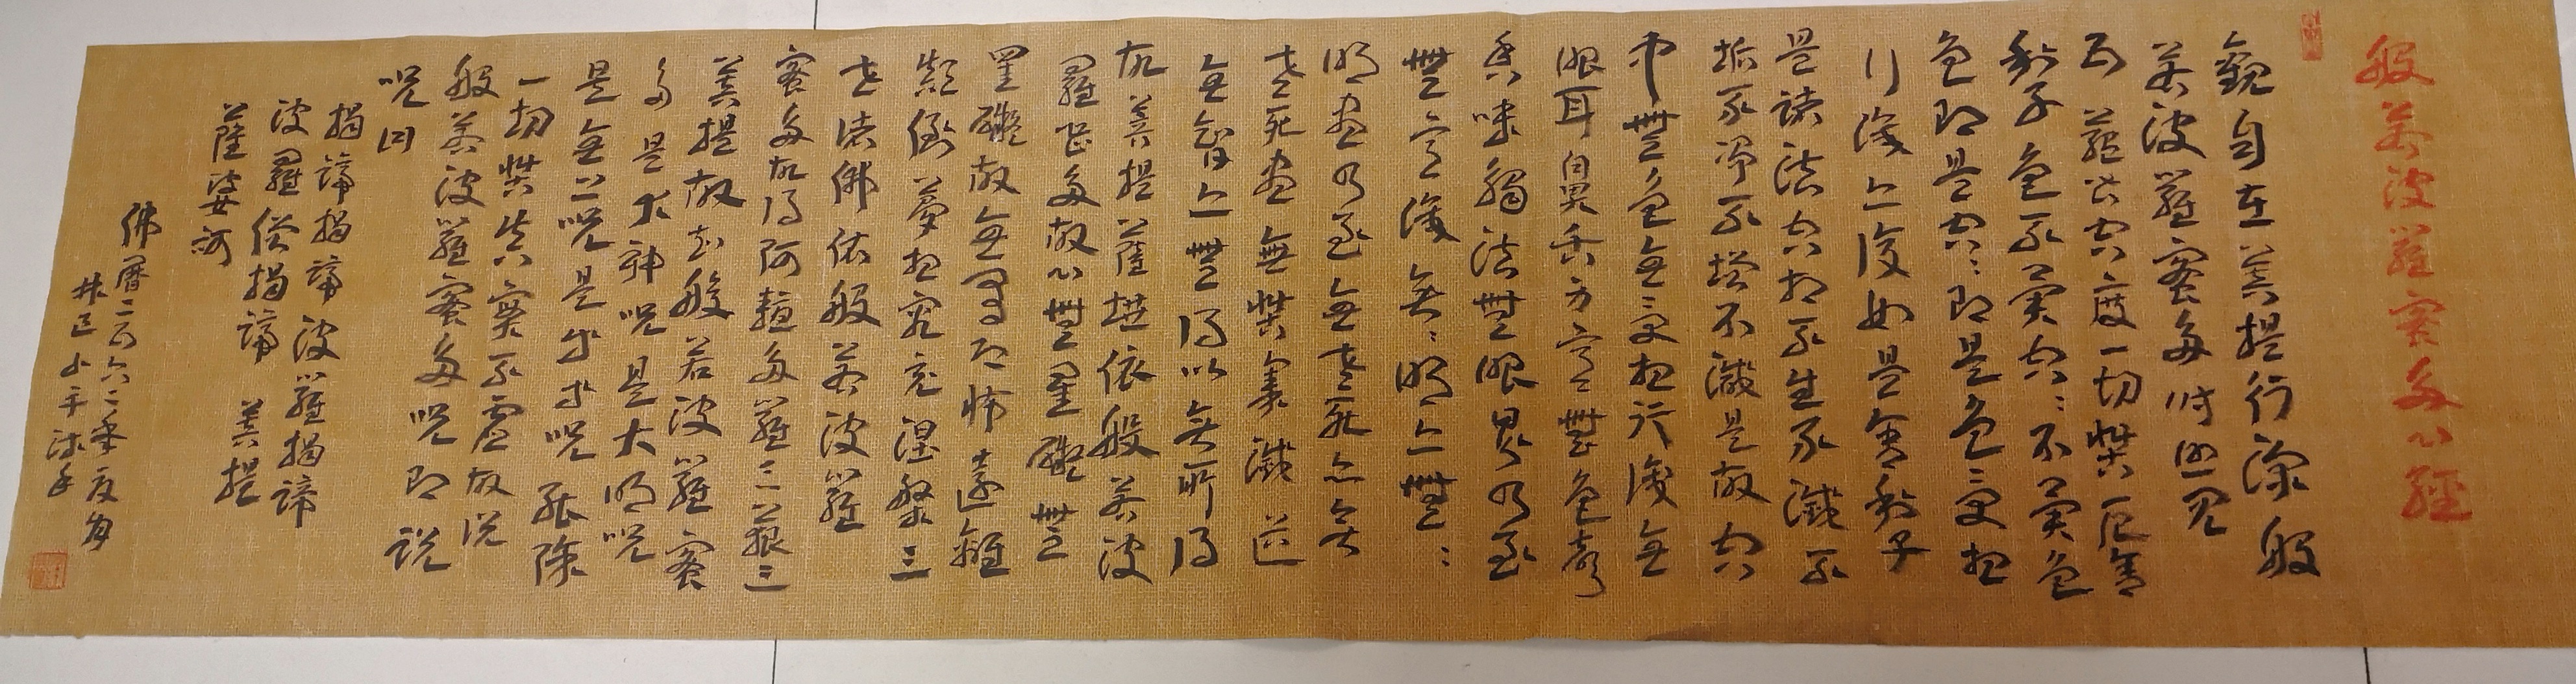 般若波羅蜜多心經
觀自在菩提行深般
若波羅蜜多時照見
五蘊皆空度一切苦厄舍
利子色不異空空不異色
色即是空空即是色受想
行識亦復如是舍利子
是諸法空相不生不滅不
垢不淨不增不減是故空
中無色無受想行識無
眼耳鼻舌身意無色聲
香味觸法無眼界乃至
無意識無無明亦無無
明盡乃至無老死亦無
老死盡無苦集滅道
無智亦無得以無所得
故菩提薩埵依般若波
羅蜜多故心無罣礙無
罣礙故無有恐怖遠離
顛倒夢想究竟涅槃三
世諸佛依般若波羅
蜜多故得阿耨多羅三藐三
菩提故知般若波羅蜜
多是大神呪是大明呪
是無上呪是無等等呪能除
一切苦真實不虛故說
般若波羅蜜多呪即說
呪曰
揭諦揭諦波羅揭諦
波羅僧揭諦菩提
薩婆訶
佛曆二五六二年